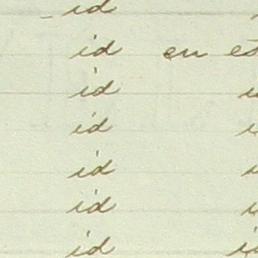 id
id en es
id
id
id
id
id